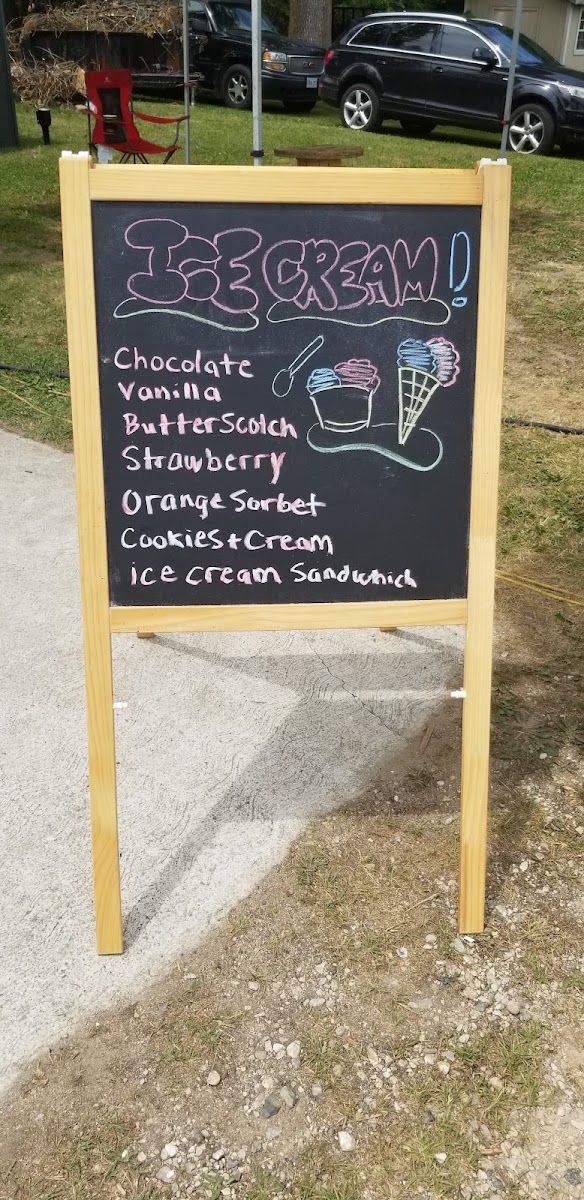 ICE CREAM!
Chocolate
Vanilla
ButterScotch
Strawberry
Orange Sorbet
Cookies + Cream
ice cream Sandwhich